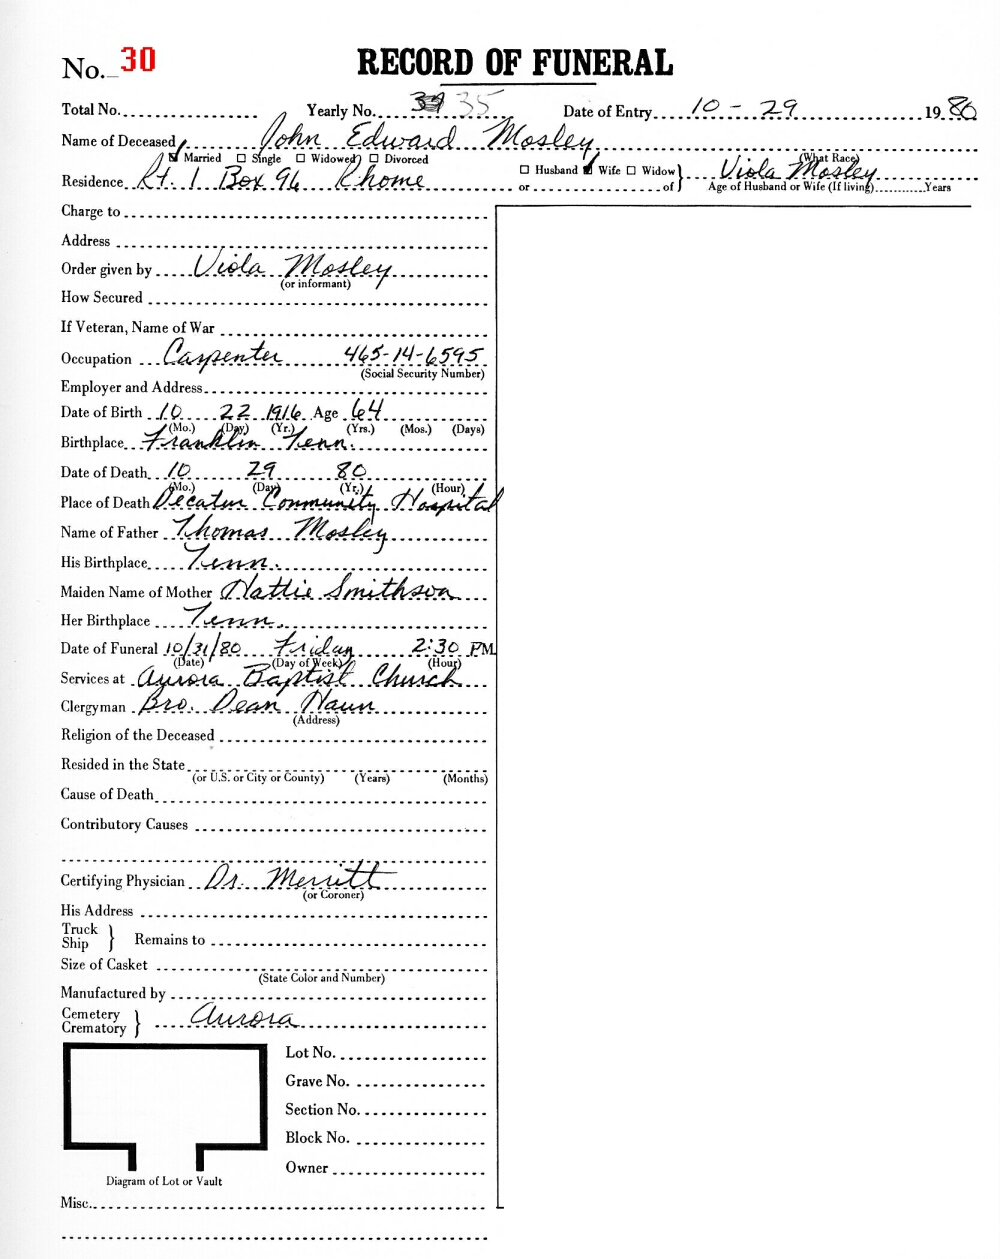 No. 30 RECORD OF FUNERAL
Total No. Yearly No. 35 Date of Entry 10 - 29 19 80
Name of Deceased John Edward Mosley
(What Race)
Married Single Widowed Divorced
Husband Wife Widow
Residence Rt. 1 Box 96 Rhome or of Viola Mosley
Age of Husband or Wife (If living) Years
Charge to
Address
Order given by Viola Mosley
(or informant)
How Secured
If Veteran, Name of War
Occupation Carpenter 465-14-6595
(Social Security Number)
Employer and Address
Date of Birth 10 22 1916 Age 64
(Mo.) (Day) (Yr.) (Yrs.) (Mos.) (Days)
Birthplace Franklin Tenn.
Date of Death 10 29 80
(Mo.) (Day) (Yr.) (Hour)
Place of Death Decatur Community Hospital
Name of Father Thomas Mosley
His Birthplace Tenn.
Maiden Name of Mother Hattie Smithson
Her Birthplace Tenn.
Date of Funeral 10/31/80 Friday 2:30 PM
(Date) (Day of Week) (Hour)
Services at Aurora Baptist Church
Clergyman Bro. Dean Naun
(Address)
Religion of the Deceased
Resided in the State
(or U.S. or City or County) (Years) (Months)
Cause of Death
Contributory Causes
Certifying Physician Dr. Merritt
(or Coroner)
His Address
Truck
Ship } Remains to
Size of Casket
(State Color and Number)
Manufactured by
Cemetery
Crematory } Aurora
Lot No.
Grave No.
Section No.
Block No.
Owner
Diagram of Lot or Vault
Misc.